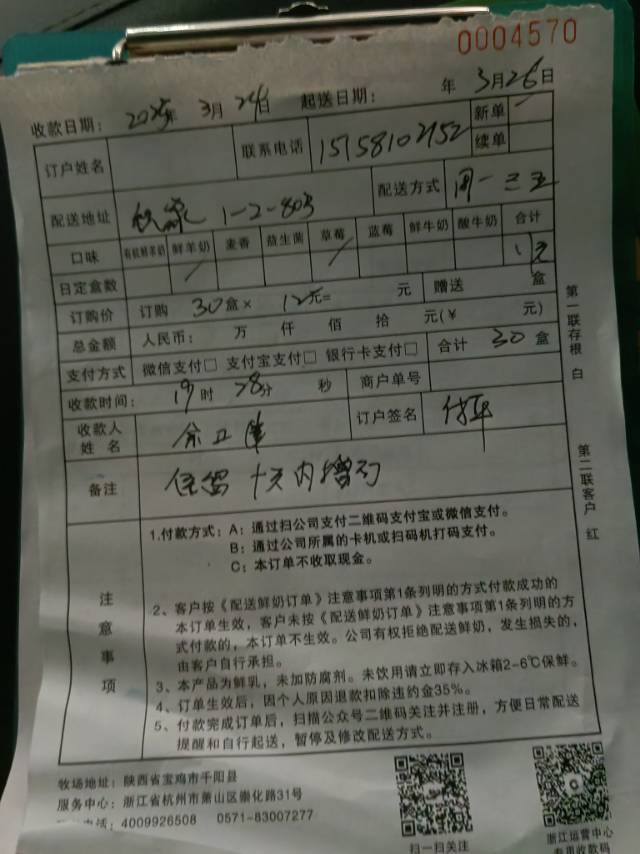 0004570
收款日期： 2025年 3月24日 起送日期： 年 3月26日
订户姓名 联系电话 15158102152 新单
续单
配送地址 1-2-803 配送方式 周一三五
口味 有机鲜羊奶 鲜羊奶 麦香 益生菌 草莓 蓝莓 鲜牛奶 酸牛奶 合计
日定盒数
订购价 订购 30盒× 12元= 元 赠送 盒
总金额 人民币： 万 仟 佰 拾 元(￥ 元)
支付方式 微信支付□ 支付宝支付□ 银行卡支付□ 合计 30 盒
收款时间： 19时 28分 秒 商户单号
收款人姓名 订户签名
备注 十天内增订
注意事项
1.付款方式：A；通过扫公司支付二维码支付宝或微信支付。
B；通过公司所属的卡机或扫码机打码支付。
C；本订单不收取现金。
2、客户按《配送鲜奶订单》注意事项第1条列明的方式付款成功的
本订单生效，客户未按《配送鲜奶订单》注意事项第1条列明的方
式付款的，本订单不生效。公司有权拒绝配送鲜奶，发生损失的，
由客户自行承担。
3、本产品为鲜乳，未加防腐剂。未饮用请立即存入冰箱2-6℃保鲜。
4、订单生效后，因个人原因退款扣除违约金35%。
5、付款完成订单后，扫描公众号二维码关注并注册，方便日常配送
提醒和自行起送，暂停及修改配送方式。
第一联存根 白
第二联客户 红
牧场地址：陕西省宝鸡市千阳县
服务中心：浙江省杭州市萧山区崇化路31号
电话：4009926508 0571-83007277
扫一扫关注
浙江运营中心
专用收款码